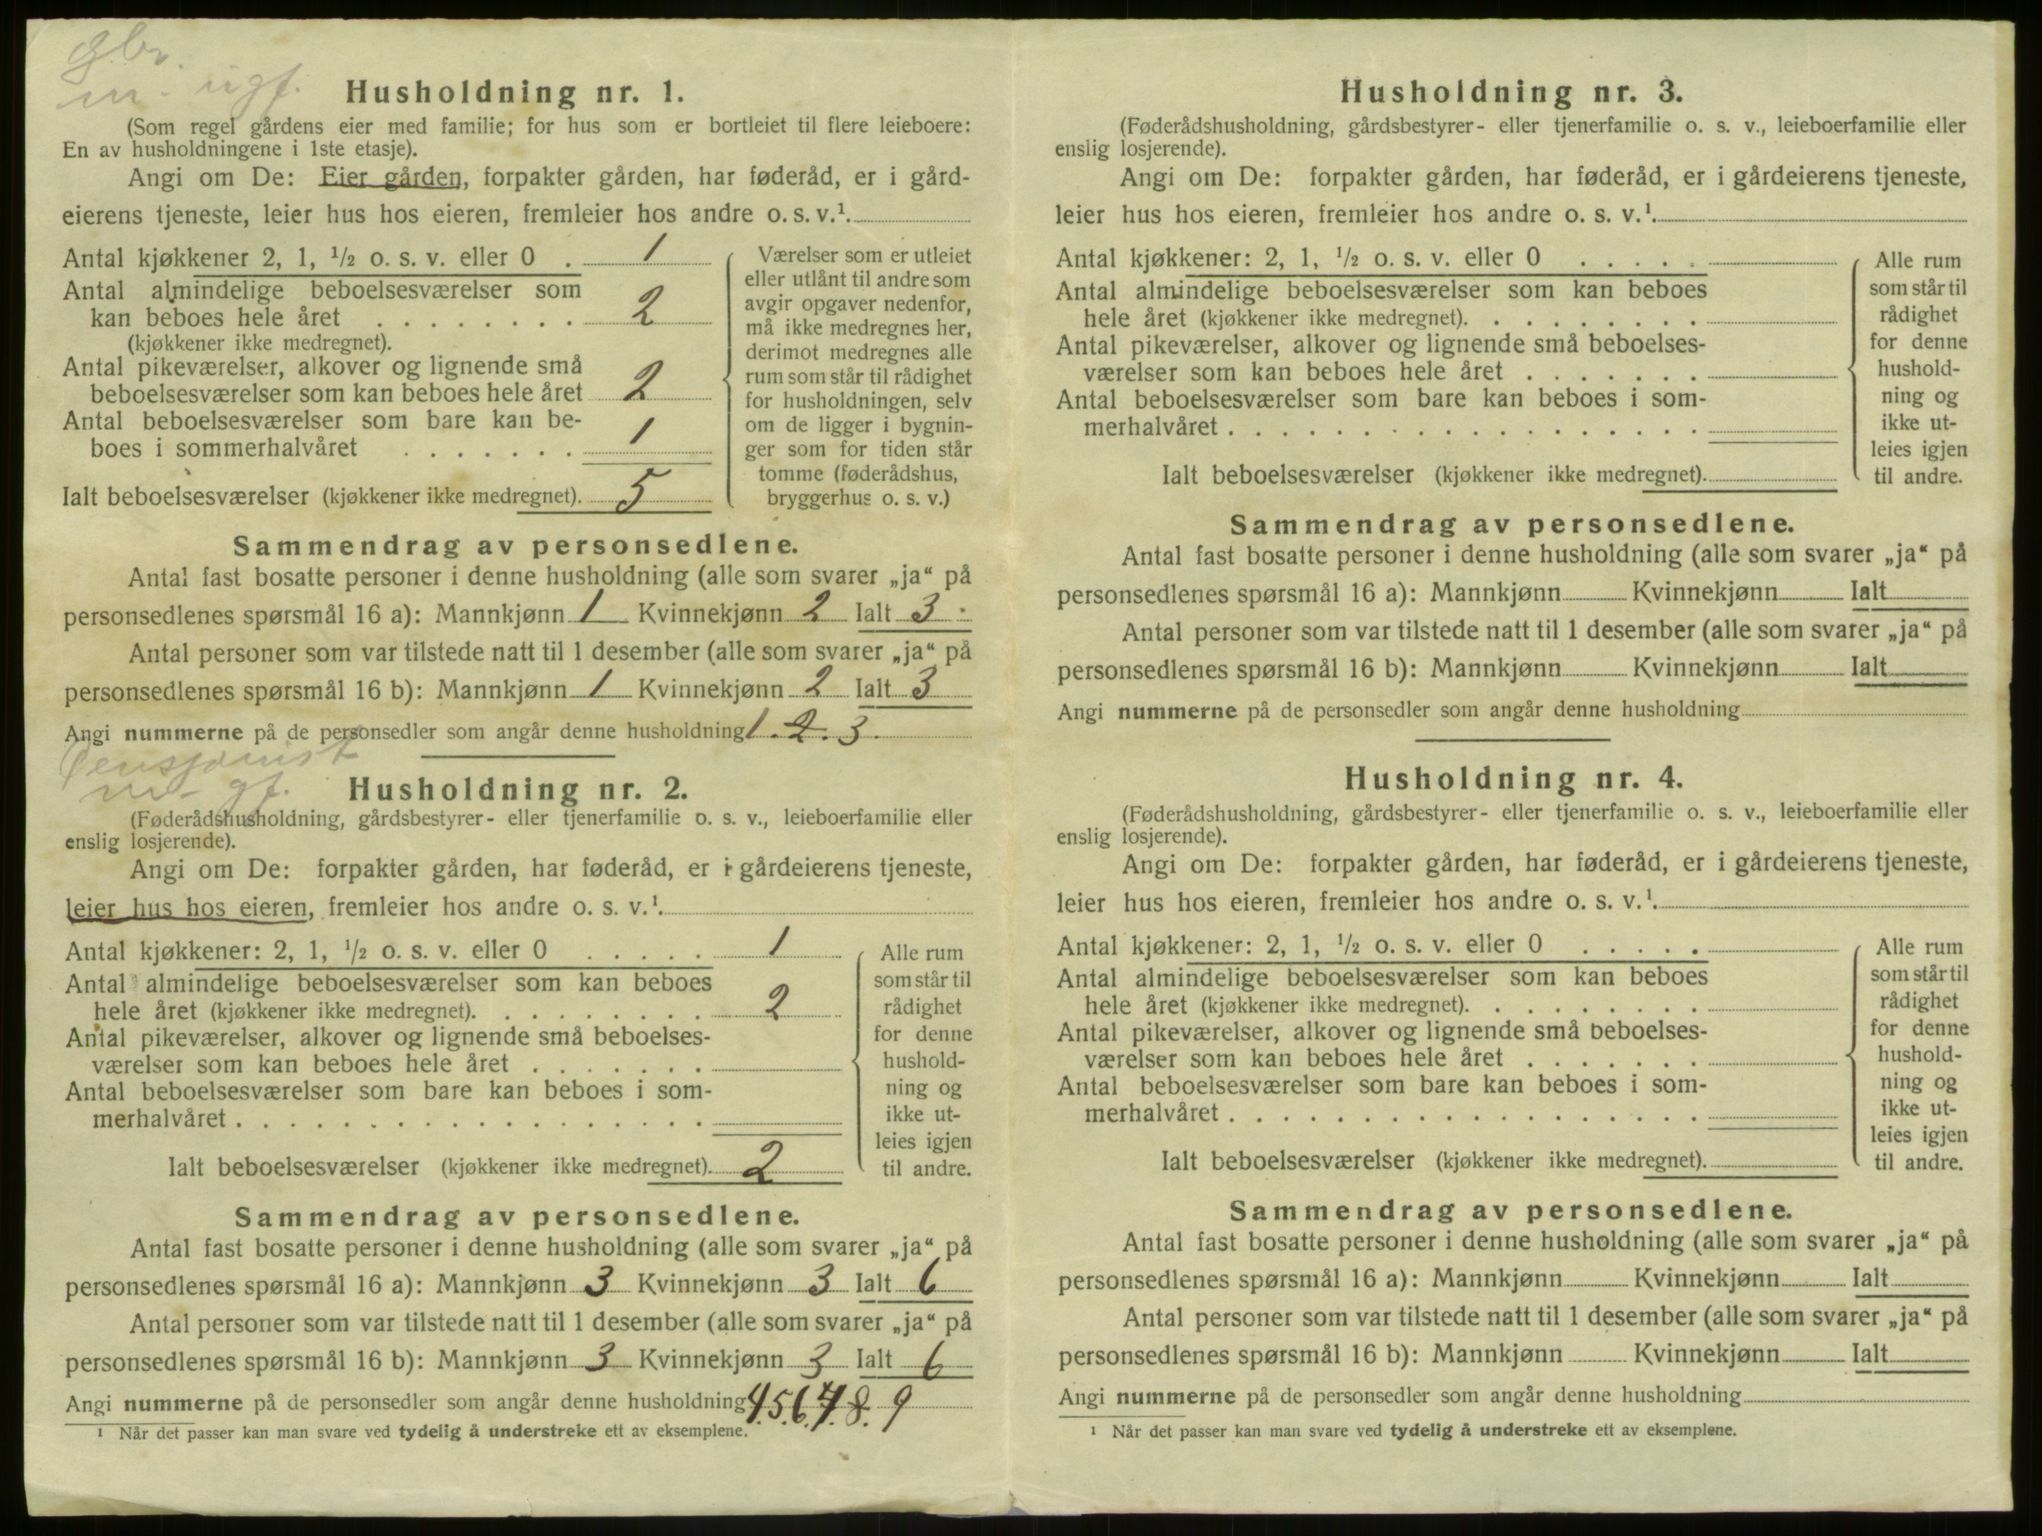 gbr.
m. ugf.
Husholdning nr. 1.
(Som regel gårdens eier med familie; for hus som er bortleiet til flere leieboere:
En av husholdningene i 1ste etasje).
Angi om De: Eier gården, forpakter gården, har føderåd, er i gård-
eierens tjeneste, leier hus hos eieren, fremleier hos andre o. s. v.¹.
Antal kjøkkener 2, 1, ½ o. s. v. eller 0 . 1
Antal almindelige beboelsesværelser som
kan beboes hele året . . . . . . . . 2
(kjøkkener ikke medregnet).
Antal pikeværelser, alkover og lignende små
beboelsesværelser som kan beboes hele året 2
Antal beboelsesværelser som bare kan be-
boes i sommerhalvåret . . . . . . . 1
Ialt beboelsesværelser (kjøkkener ikke medregnet). 5
Værelser som er utleiet
eller utlånt til andre som
avgir opgaver nedenfor,
må ikke medregnes her,
derimot medregnes alle
rum som står til rådighet
for husholdningen, selv
om de ligger i bygnin-
ger som for tiden står
tomme (føderådshus,
bryggerhus o. s. v.)
Sammendrag av personsedlene.
Antal fast bosatte personer i denne husholdning (alle som svarer „ja“ på
personsedlenes spørsmål 16 a): Mannkjønn 1 Kvinnekjønn 2 Ialt 3
Antal personer som var tilstede natt til 1 desember (alle som svarer „ja“ på
personsedlenes spørsmål 16 b): Mannkjønn 1 Kvinnekjønn 2 Ialt 3
Angi nummerne på de personsedler som angår denne husholdning 1. 2. 3.
Pensjonist
m- gf.
Husholdning nr. 2.
(Føderådshusholdning, gårdsbestyrer- eller tjenerfamilie o. s. v., leieboerfamilie eller
enslig losjerende).
Angi om De: forpakter gården, har føderåd, er i gårdeierens tjeneste,
leier hus hos eieren, fremleier hos andre o. s. v.¹.
Antal kjøkkener: 2, 1, ½ o. s. v. eller 0 . . . . . 1
Antal almindelige beboelsesværelser som kan beboes
hele året (kjøkkener ikke medregnet). . . . . . . . . 2
Antal pikeværelser, alkover og lignende små beboelses-
værelser som kan beboes hele året . . . . . . .
Antal beboelsesværelser som bare kan beboes i som-
merhalvåret . . . . . . . . . . . . . . . . . .
Ialt beboelsesværelser (kjøkkener ikke medregnet). 2
Alle rum
som står til
rådighet
for denne
hushold-
ning og
ikke ut-
leies igjen
til andre.
Sammendrag av personsedlene.
Antal fast bosatte personer i denne husholdning (alle som svarer „ja“ på
personsedlenes spørsmål 16 a): Mannkjønn 3 Kvinnekjønn 3 Ialt 6
Antal personer som var tilstede natt til 1 desember (alle som svarer „ja“ på
personsedlenes spørsmål 16 b): Mannkjønn 3 Kvinnekjønn 3 Ialt 6
Angi nummerne på de personsedler som angår denne husholdning 4.5.6.7.8. 9
¹ Når det passer kan man svare ved tydelig å understreke ett av eksemplene.
Husholdning nr. 3.
(Føderådshusholdning, gårdsbestyrer- eller tjenerfamilie o. s. v., leieboerfamilie eller
enslig losjerende).
Angi om De: forpakter gården, har føderåd, er i gårdeierens tjeneste,
leier hus hos eieren, fremleier hos andre o. s. v.¹.
Antal kjøkkener: 2, 1, ½ o. s. v. eller 0 . . . . .
Antal almindelige beboelsesværelser som kan beboes
hele året (kjøkkener ikke medregnet). . . . . . . . .
Antal pikeværelser, alkover og lignende små beboelses-
værelser som kan beboes hele året . . . . . . .
Antal beboelsesværelser som bare kan beboes i som-
merhalvåret . . . . . . . . . . . . . . . . . .
Ialt beboelsesværelser (kjøkkener ikke medregnet).
Alle rum
som står til
rådighet
for denne
hushold-
ning og
ikke ut-
leies igjen
til andre.
Sammendrag av personsedlene.
Antal fast bosatte personer i denne husholdning (alle som svarer „ja“ på
personsedlenes spørsmål 16 a): Mannkjønn Kvinnekjønn Ialt
Antal personer som var tilstede natt til 1 desember (alle som svarer „ja“ på
personsedlenes spørsmål 16 b): Mannkjønn Kvinnekjønn Ialt
Angi nummerne på de personsedler som angår denne husholdning
Husholdning nr. 4.
(Føderådshusholdning, gårdsbestyrer- eller tjenerfamilie o. s. v., leieboerfamilie eller
enslig losjerende).
Angi om De: forpakter gården, har føderåd, er i gårdeierens tjeneste,
leier hus hos eieren, fremleier hos andre o. s. v.¹.
Antal kjøkkener: 2, 1, ½ o. s. v. eller 0 . . . . .
Antal almindelige beboelsesværelser som kan beboes
hele året (kjøkkener ikke medregnet). . . . . . . . .
Antal pikeværelser, alkover og lignende små beboelses-
værelser som kan beboes hele året . . . . . . .
Antal beboelsesværelser som bare kan beboes i som-
merhalvåret . . . . . . . . . . . . . . . . . .
Ialt beboelsesværelser (kjøkkener ikke medregnet).
Alle rum
som står til
rådighet
for denne
hushold-
ning og
ikke ut-
leies igjen
til andre.
Sammendrag av personsedlene.
Antal fast bosatte personer i denne husholdning (alle som svarer „ja“ på
personsedlenes spørsmål 16 a): Mannkjønn Kvinnekjønn Ialt
Antal personer som var tilstede natt til 1 desember (alle som svarer „ja“ på
personsedlenes spørsmål 16 b): Mannkjønn Kvinnekjønn Ialt
Angi nummerne på de personsedler som angår denne husholdning
¹ Når det passer kan man svare ved tydelig å understreke ett av eksemplene.